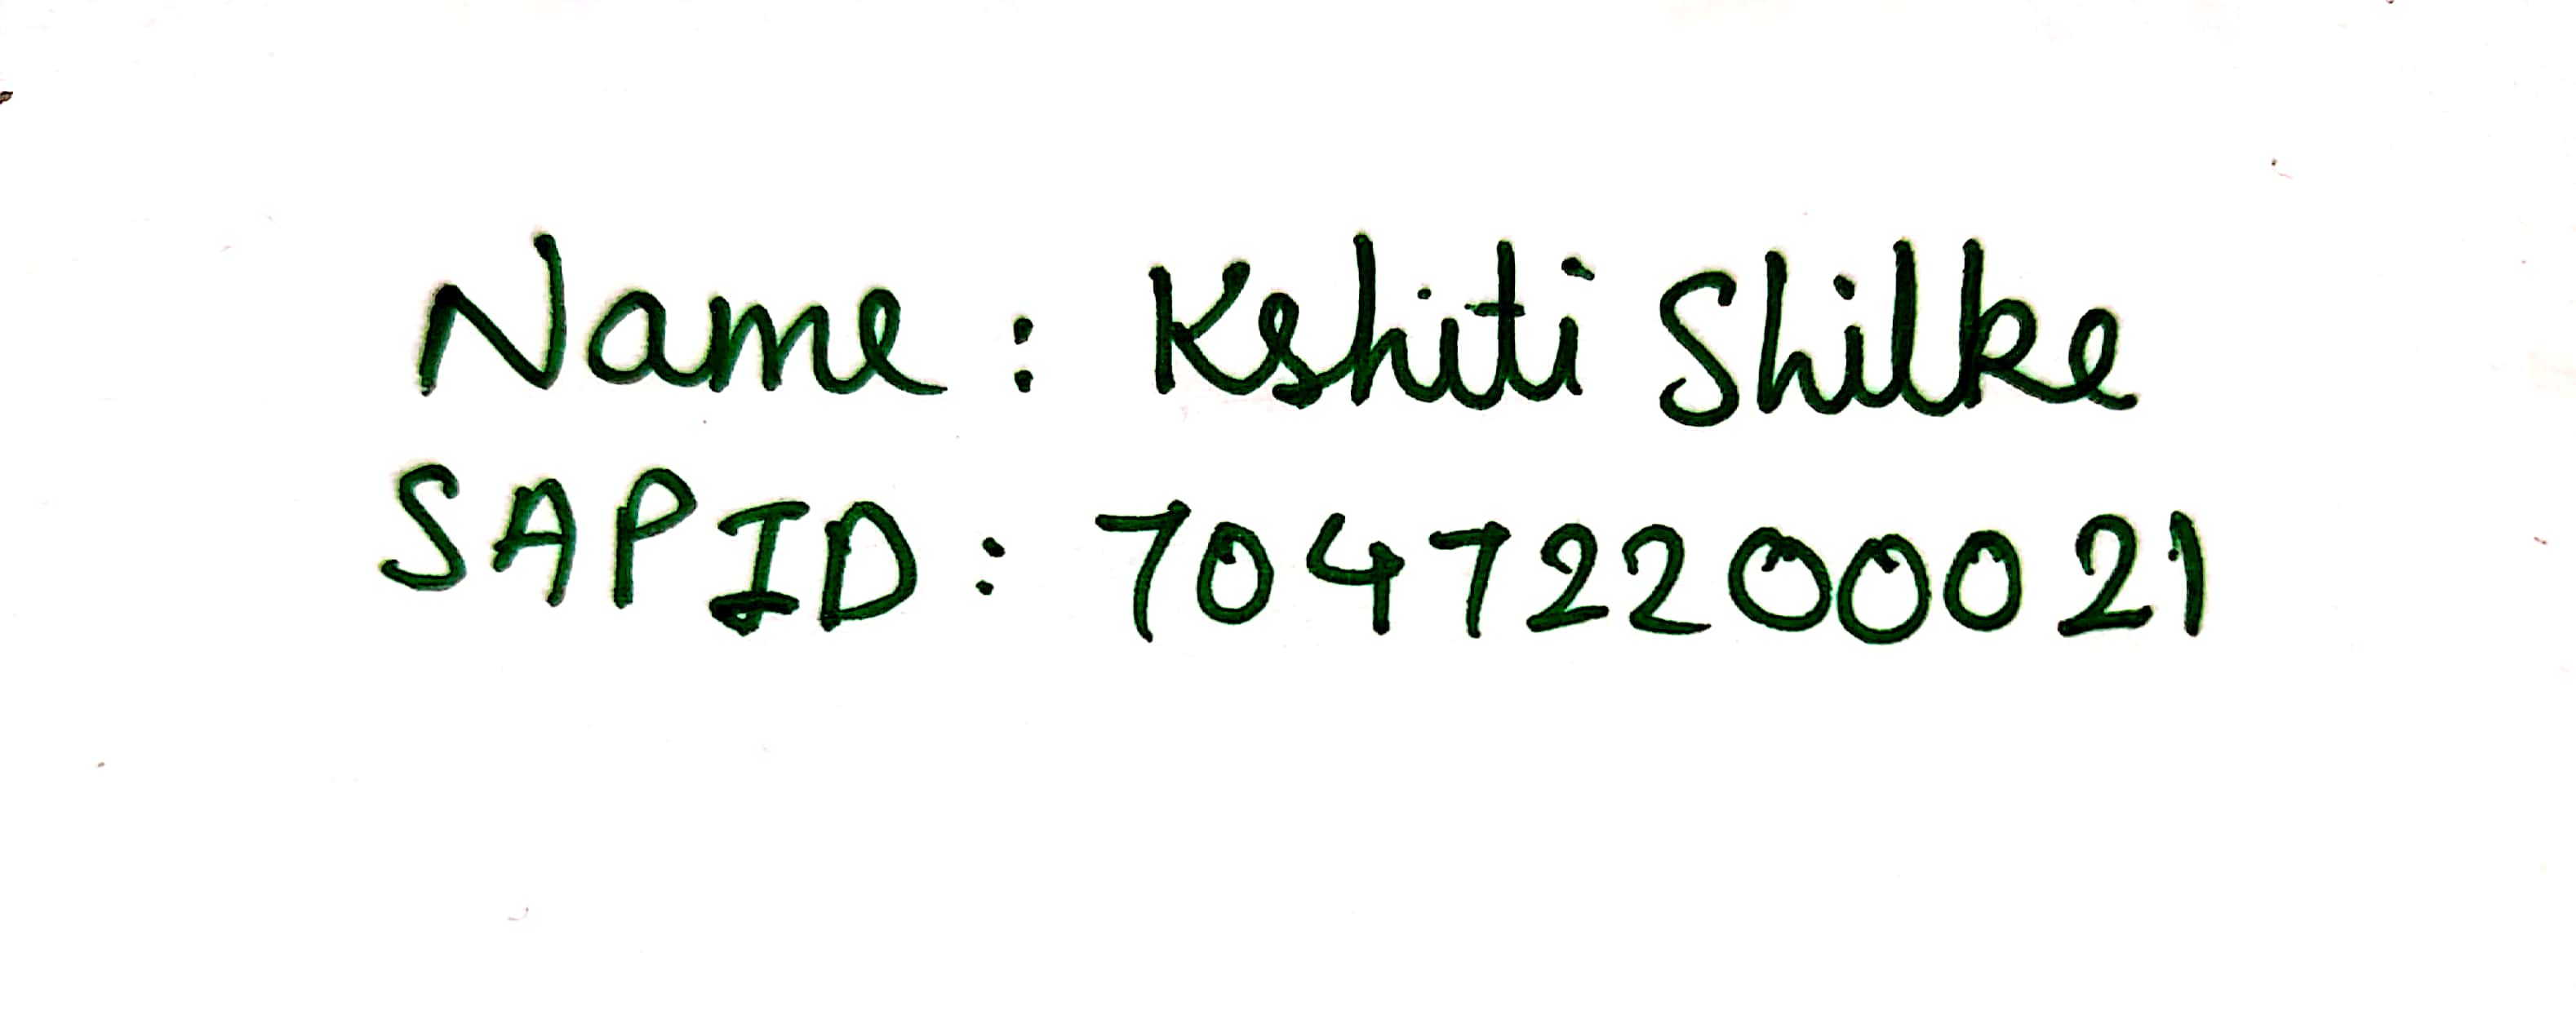 Name : Kshiti Shilke
SAP ID : 70472200021